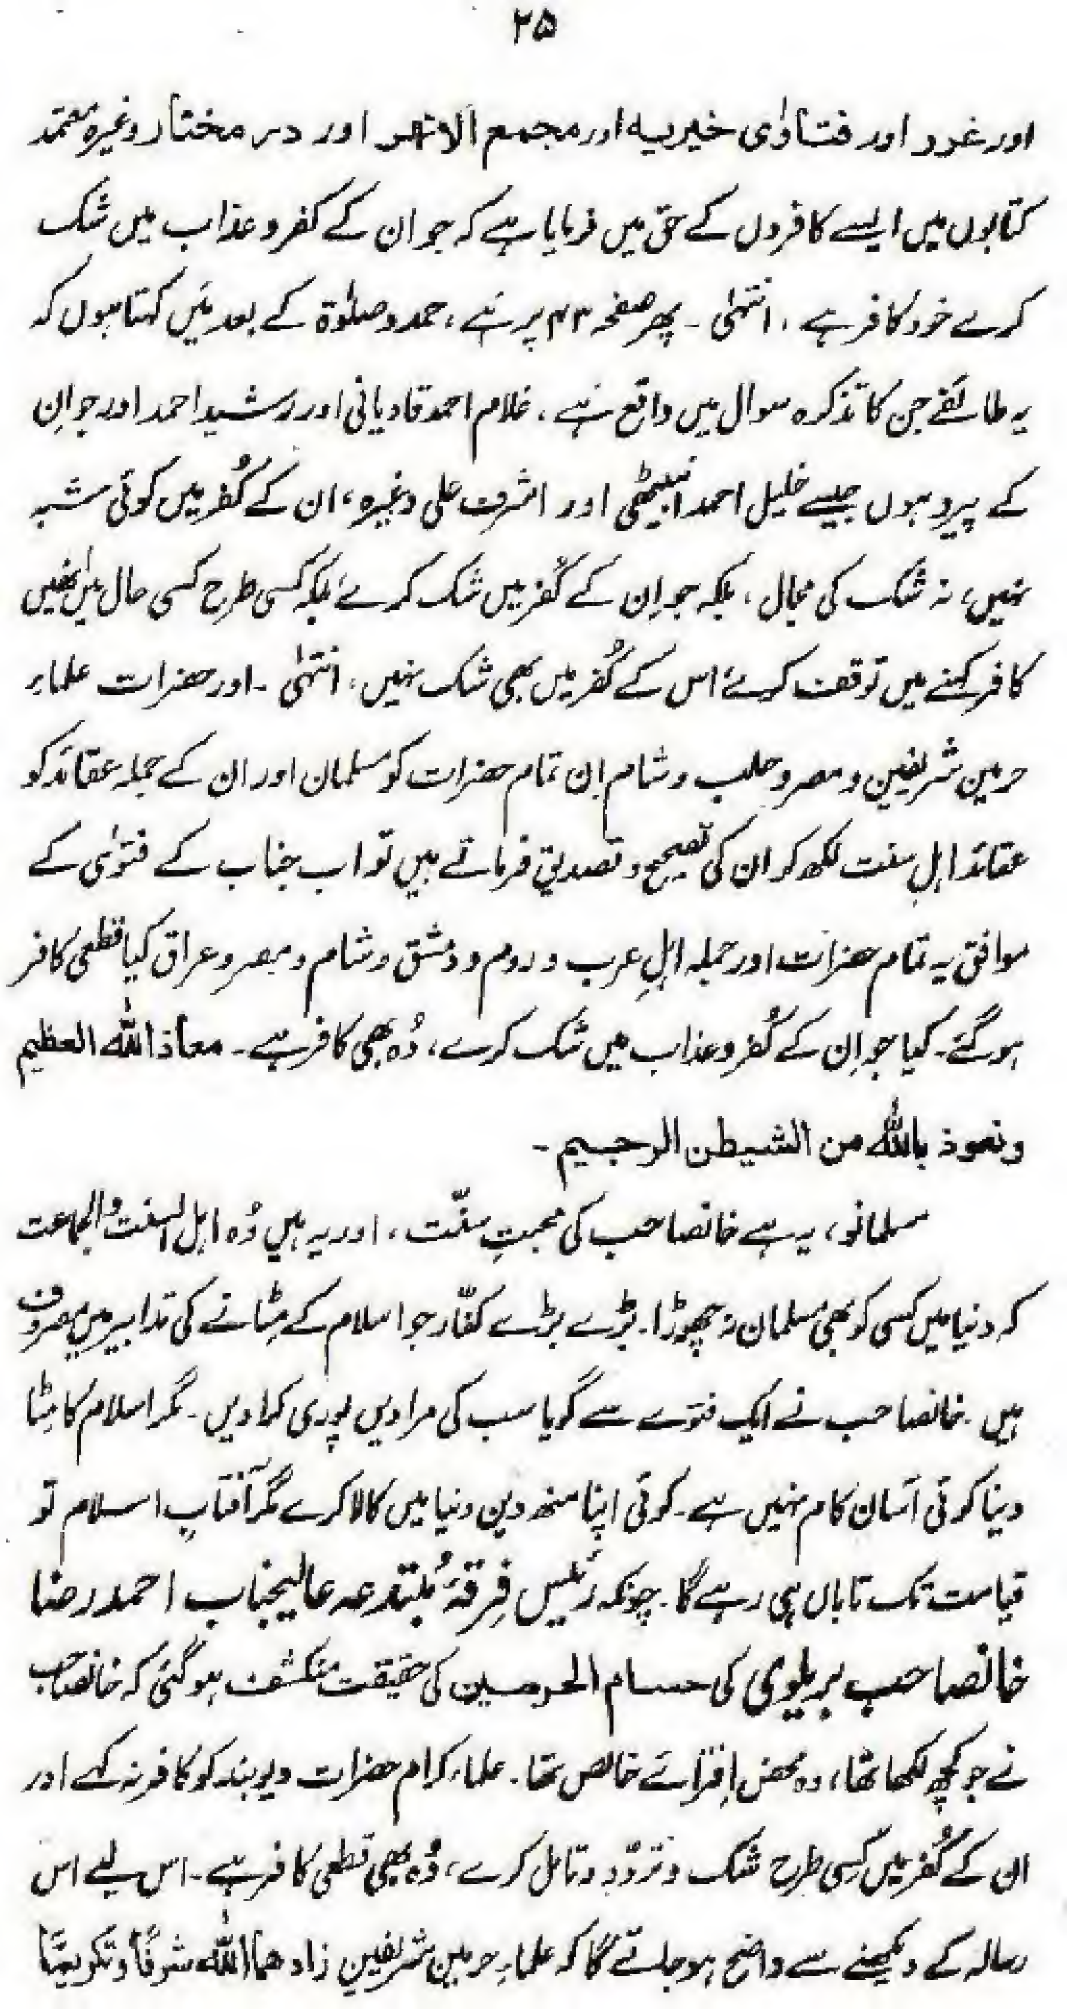 ۲۵
اور غرر اور فتاوٰی خیریہ اور مجمع الانھر اور در مختار وغیرہ معتمد
کتابوں میں ایسے کافروں کے حق میں فرمایا ہے کہ جو ان کے کفر و عذاب میں شک
کرے خود کافر ہے، انتہٰی ۔ پھر صفحہ ۴۳ پر ہے، حمد و صلوٰۃ کے بعد میں کہتا ہوں کہ
یہ طائفے جن کا تذکرہ سوال میں واقع ہے، غلام احمد قادیانی اور رشید احمد اور جو اِن
کے پیرو ہوں جیسے خلیل احمد انبیٹھی اور اشرف علی وغیرہ، ان کے کُفر میں کوئی شبہ
نہیں، نہ شک کی مجال، بلکہ جو اِن کے کُفر میں شک کرے بلکہ کسی طرح کسی حال میں اُنھیں
کافر کہنے میں توقف کرے اس کے کُفر میں بھی شک نہیں، انتہٰی ۔ اور حضرات علماءِ
حرمین شریفین و مصر و حلب و شام اِن تمام حضرات کو مسلمان اور ان کے جملہ عقائد کو
عقائد اہلِ سنت لکھ کر ان کی تصحیح و تصدیق فرماتے ہیں تو اب جناب کے فتوٰی کے
موافق یہ تمام حضرات اور جملہ اہلِ عرب و روم و دمشق و شام و مصر و عراق کیا قطعی کافر
ہوگئے ۔ کیا جو اِن کے کُفر و عذاب میں شک کرے، وُہ بھی کافر ہے ۔ معاذ اللّٰہ العظیم
ونعوذ باللّٰہ من الشیطن الرجیم ۔
مسلمانو، یہ ہے خانصاحب کی محبتِ سنّت، اور یہ ہیں وُہ اہل السنت والجماعت
کہ دنیا میں کسی کو بھی مسلمان نہ چھوڑا ۔ بڑے بڑے کفّار جو اسلام کے مِٹانے کی تدابیر میں مصروف
ہیں ۔ خانصاحب نے ایک فتوے سے گویا سب کی مرادیں پوری کرا دیں ۔ مگر اسلام کا مِٹا
دینا کوئی آسان کام نہیں ہے ۔ کوئی اپنا منھ دین دنیا میں کالا کرے مگر آفتابِ اسلام تو
قیامت تک تاباں ہی رہے گا ۔ چونکہ رئیس فِرقۂ مُبتدعہ عالیجناب احمد رضا
خانصاحب بریلوی کی حسام الحرمین کی حقیقت منکشف ہوگئی کہ خانصاحب
نے جو کچھ لکھا تھا، وہ محض اِفترائے خالص تھا ۔ علماء کرام حضرات دیوبند کو کافر نہ کہے اور
ان کے کُفر میں کسی طرح شک و تردّد و تامل کرے، وُہ بھی قطعی کافر ہے ۔ اس لیے اس
رسالہ کے دیکھنے سے واضح ہو جائے گا کہ علماءِ حرمین شریفین زادھما اللّٰہ شرفًا و تکریمًا